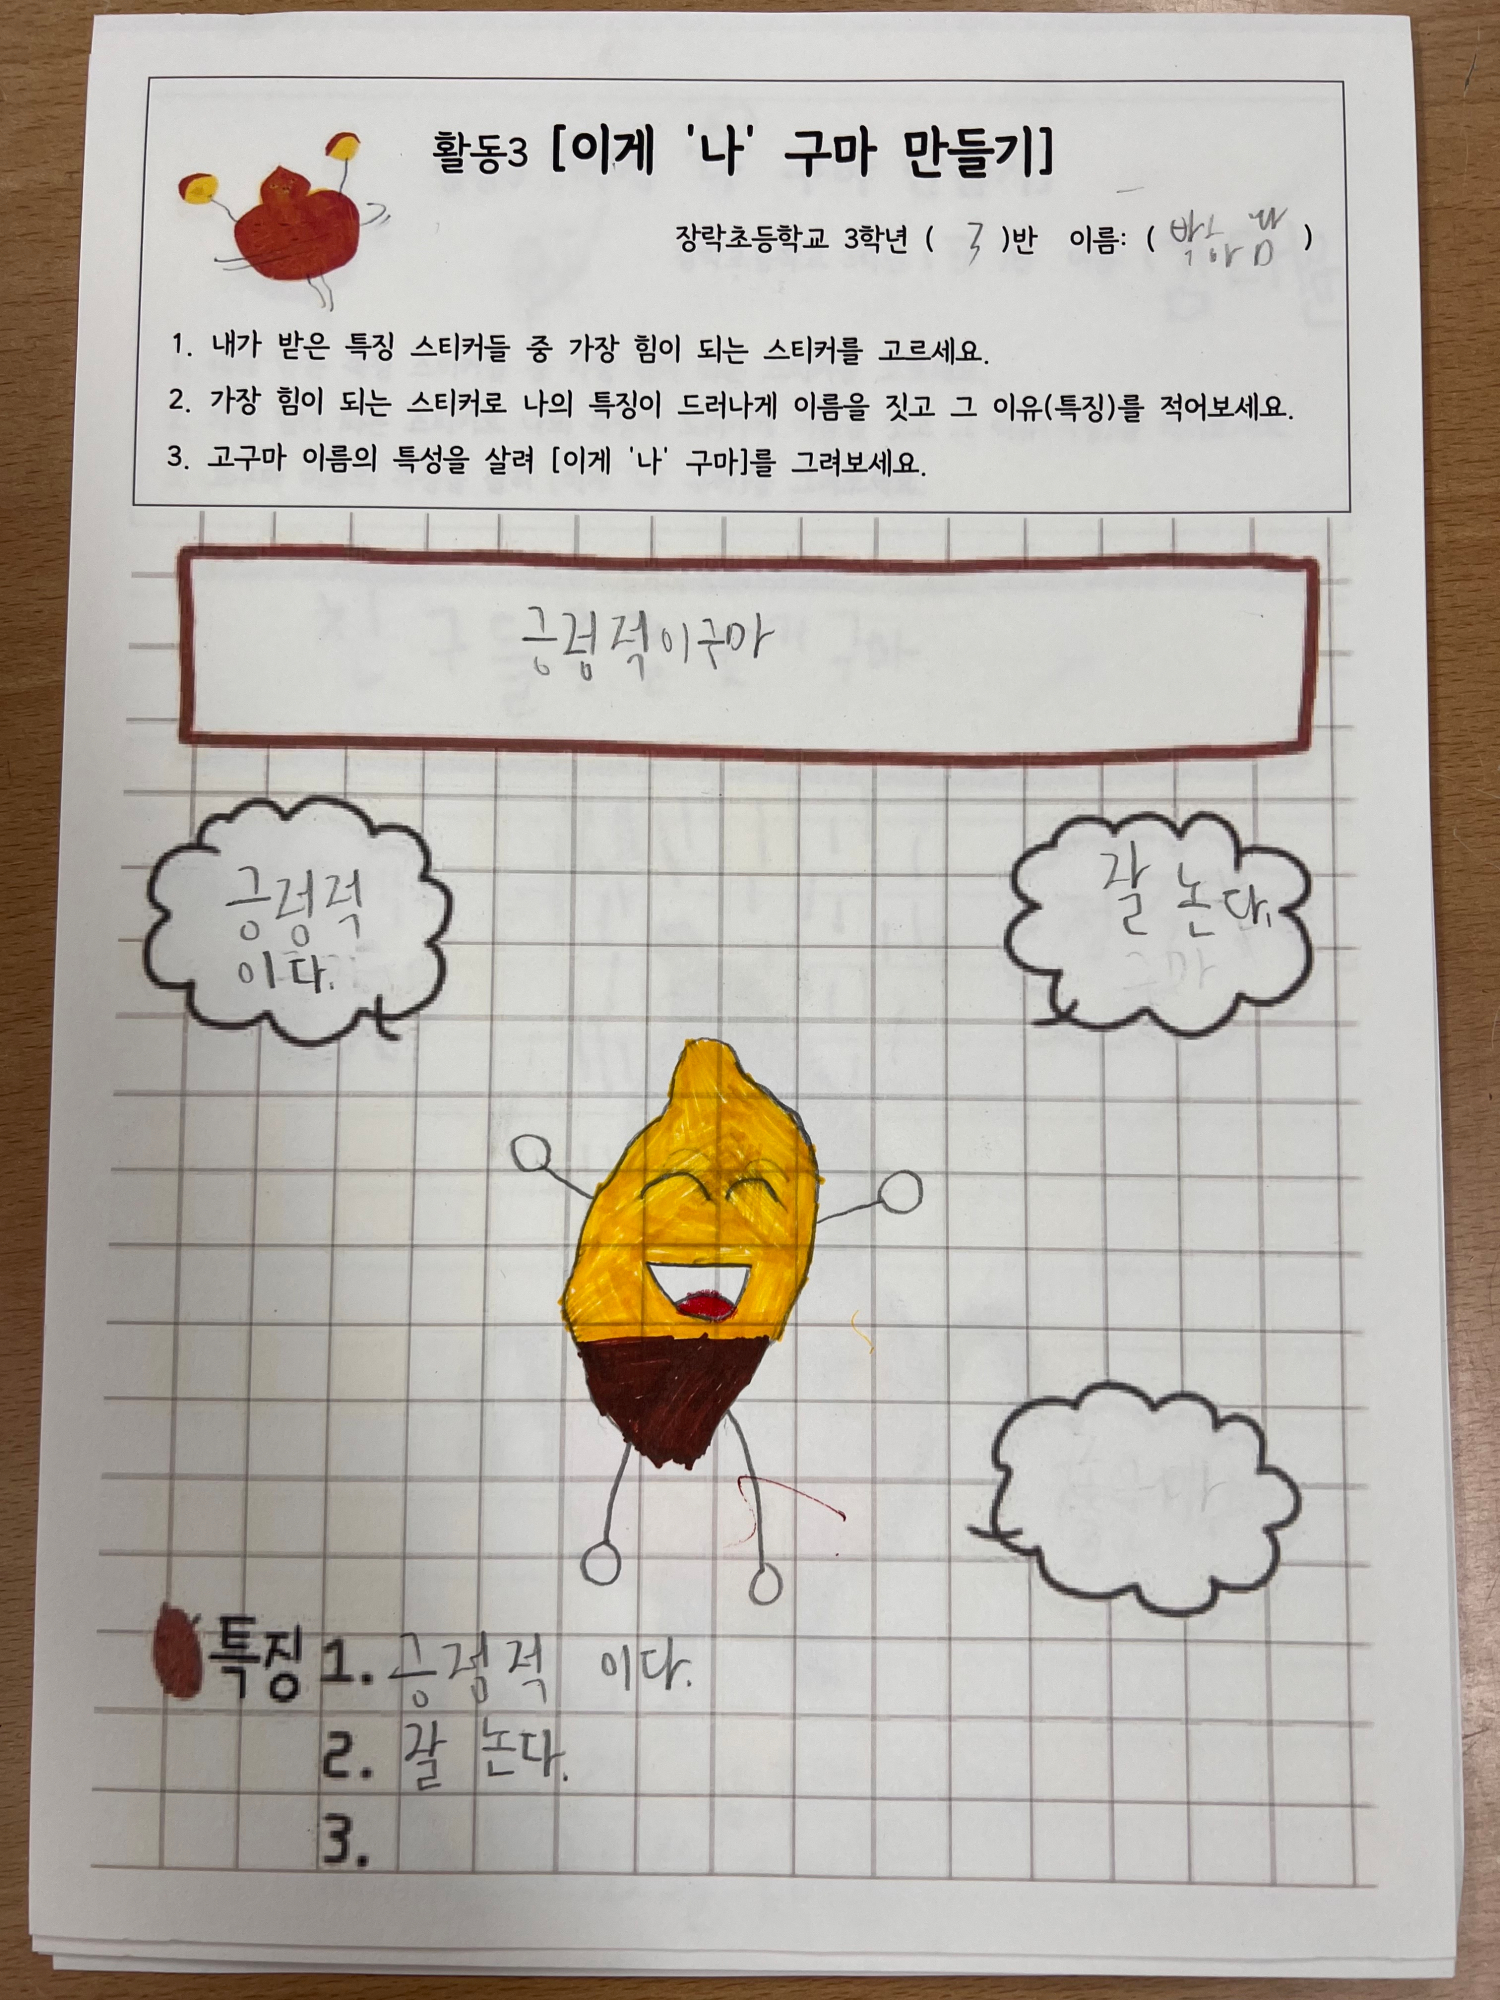 활동3 [이게 '나' 구마 만들기]
장락초등학교 3학년 ( 3 )반 이름: ( )
1. 내가 받은 특징 스티커들 중 가장 힘이 되는 스티커를 고르세요.
2. 가장 힘이 되는 스티커로 나의 특징이 드러나게 이름을 짓고 그 이유(특징)를 적어보세요.
3. 고구마 이름의 특성을 살려 [이게 '나' 구마]를 그려보세요.
긍정적이구마
긍정적
이다.
잘 논다.
특징 1. 긍정적 이다.
2. 잘 논다.
3.